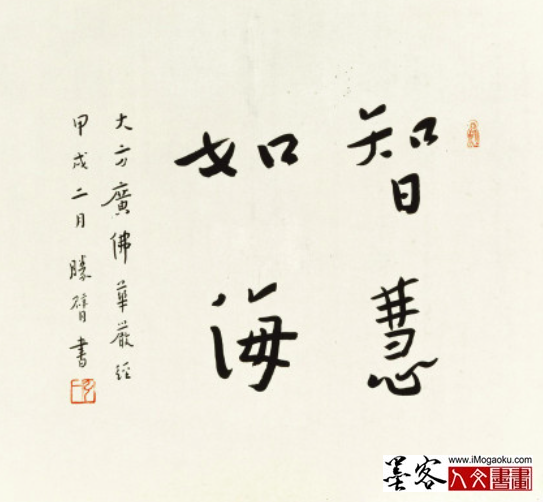 智慧
如海
大方廣佛華嚴經
甲戌二月勝臂書
墨客
www.iMogaoku.com
人文書畫